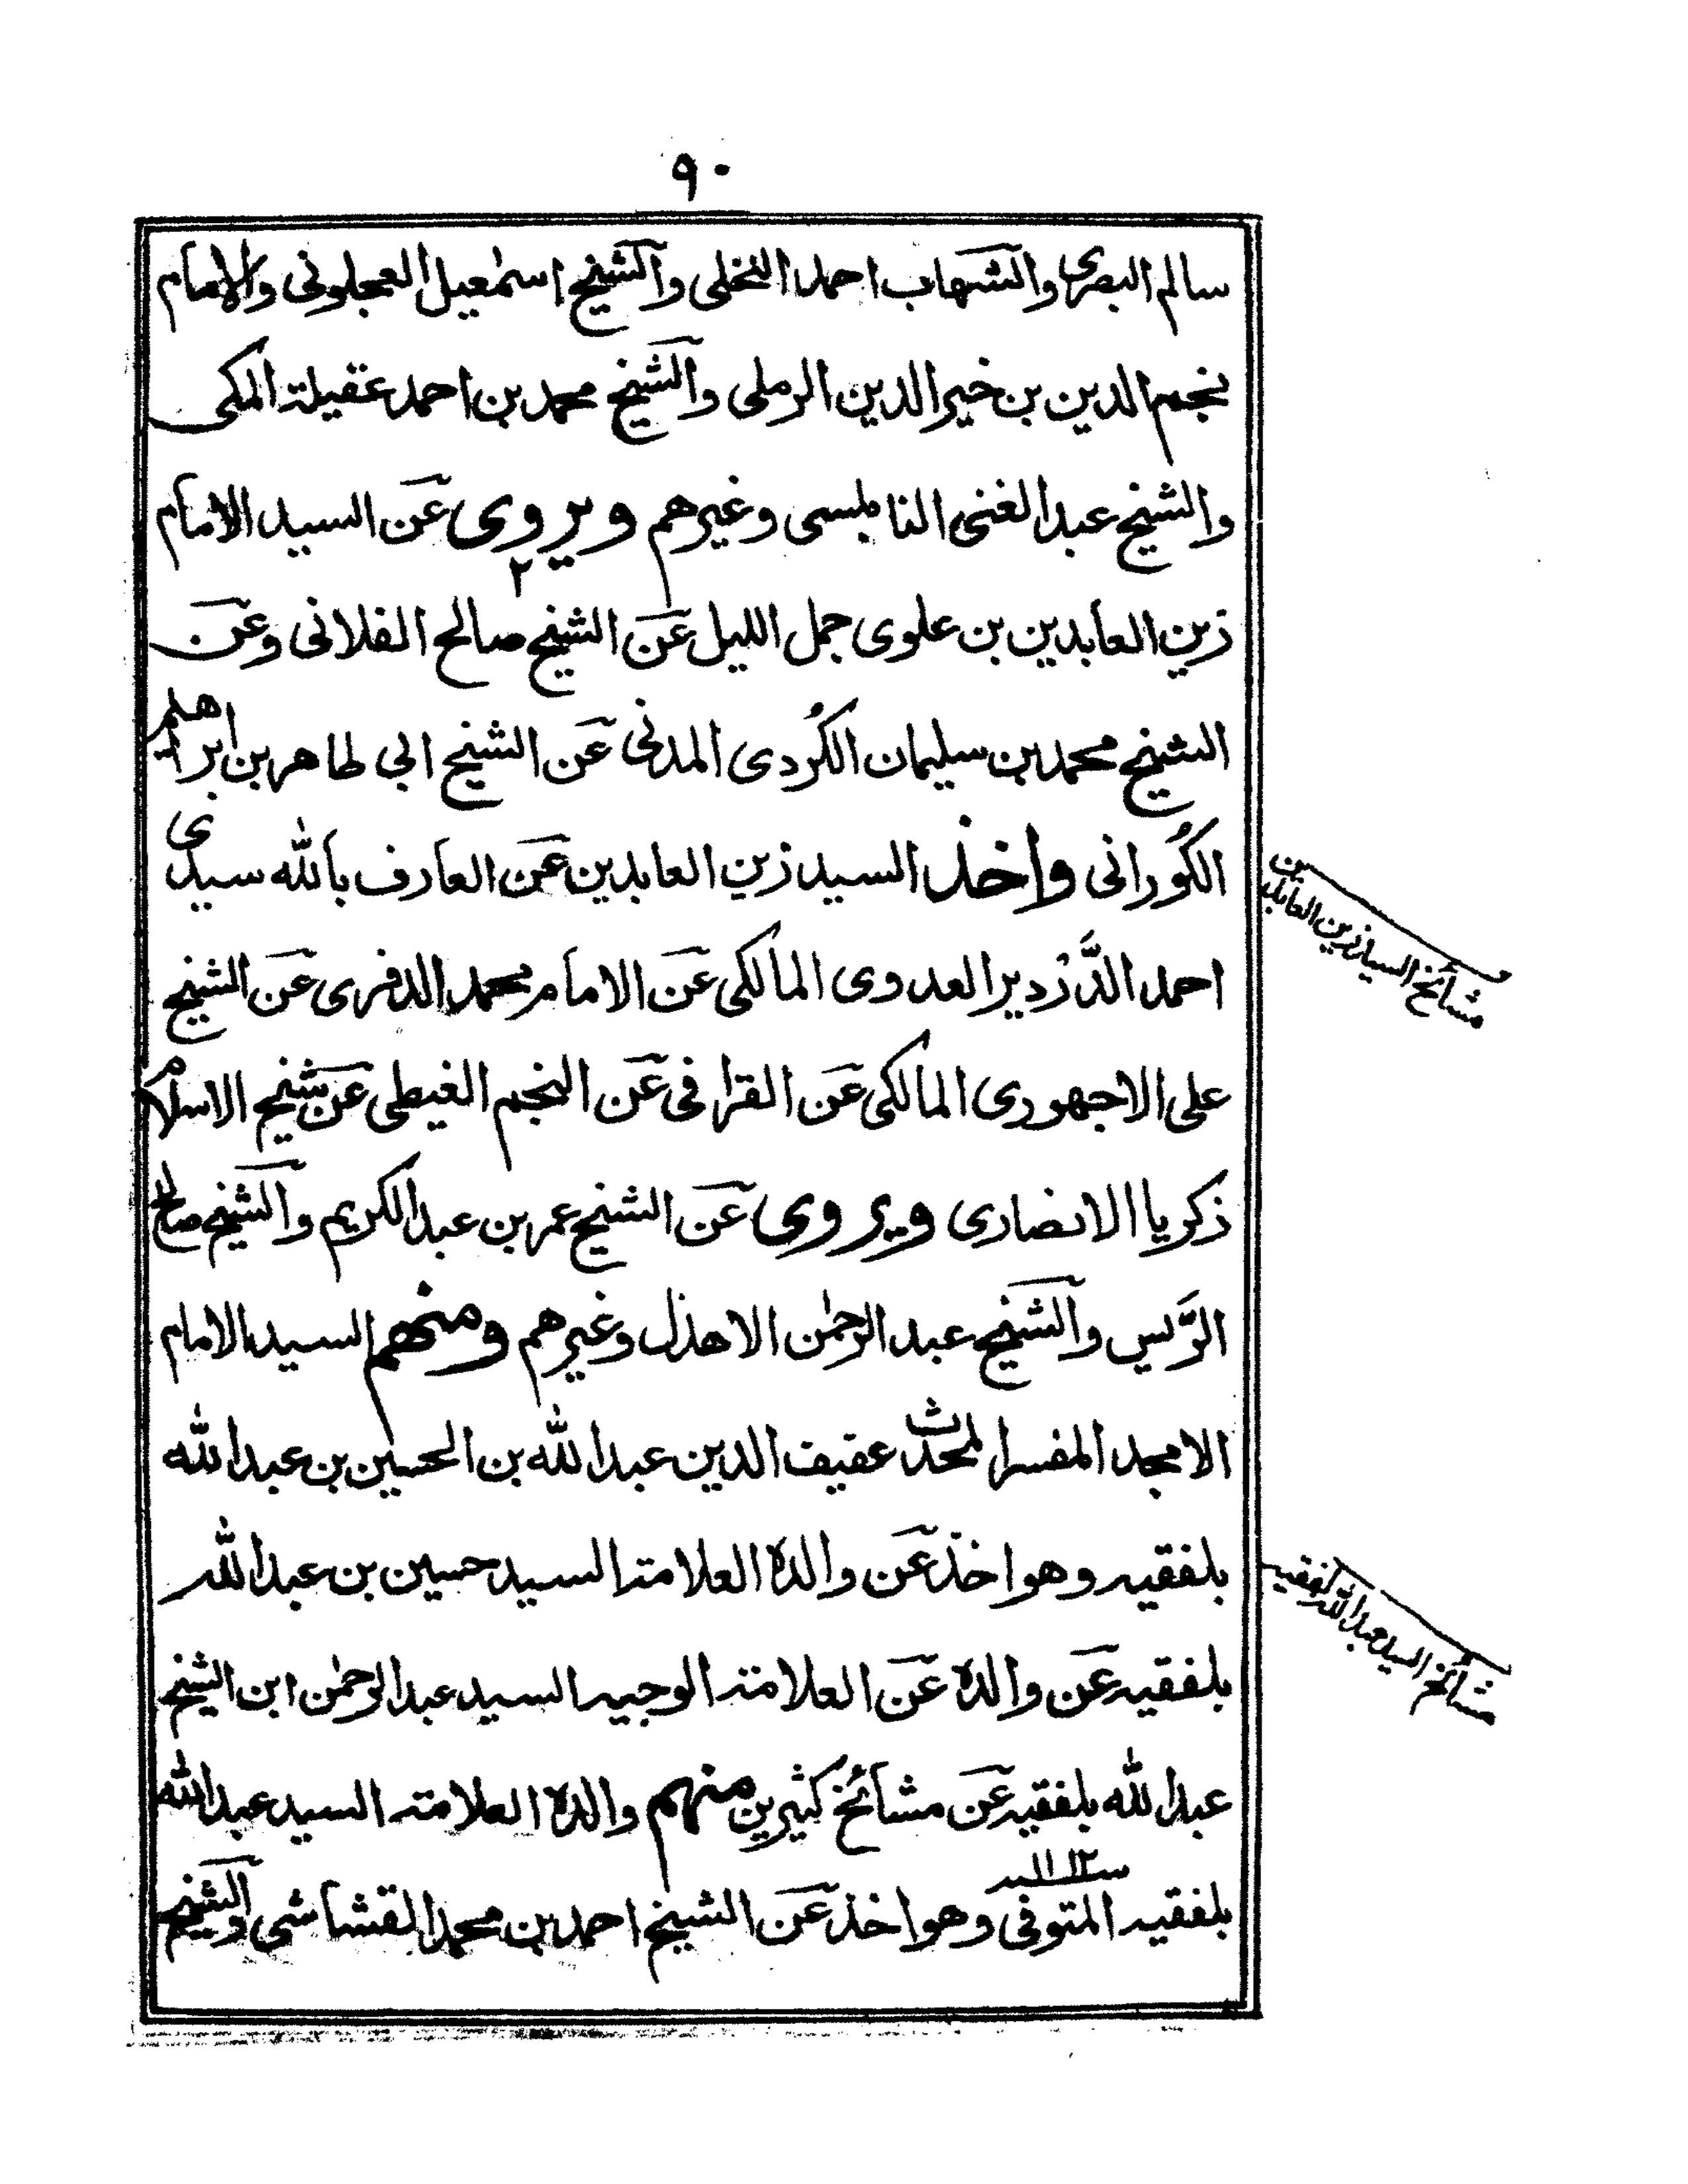 ٩٠
سالم البصرى والشهاب احمد النخلى والشيخ اسمٰعيل العجلونى والامام
نجم الدين بن خير الدين الرملى والشيخ محمد بن احمد عقيلة المكى
والشيخ عبد الغنى النابلسى وغيرهم ويروى عن السيد الامام
٢
زين العابدين بن علوى جمل الليل عن الشيخ صالح الفلانى وعن
الشيخ محمد بن سليمان الكُردى المدنى عن الشيخ ابى طاهر بن ابراهيم
الكُورانى واخذ السيد زين العابدين عن العارف بالله سيدى
مشائخ السيد زين العابدين
احمد الدَّردير العدوى المالكى عن الامام محمد الدفرى عن الشيخ
على الاجهورى المالكى عن القرافى عن النجم الغيطى عن شيخ الاسلام
زكريا الانصارى ويروى عن الشيخ عمر بن عبد الكريم والشيخ صالح
الرَّيس والشيخ عبد الرحمٰن الاهدل وغيرهم ومنهم السيد الامام
الامجد المفسر المحدث عفيف الدين عبد الله بن الحسين بن عبد الله
بلفقيه وهو اخذ عن والده العلامة السيد حسين بن عبد الله
مشائخ السيد عبد الله بلفقيه
بلفقيه عن والده عن العلامة الوجيه السيد عبد الرحمٰن ابن الشيخ
عبد الله بلفقيه عن مشائخ كثيرين منهم والده العلامة السيد عبد الله
بلفقيه المتوفى سنة ١١١٢ وهو اخذ عن الشيخ احمد بن محمد القشاشى والشيخ